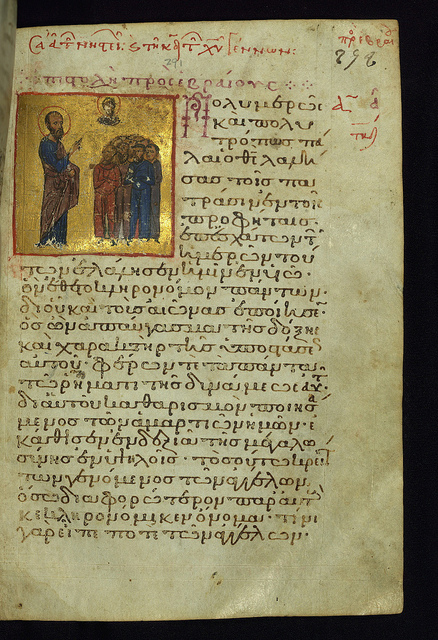 ἐπιστολὴ πρὸς ἑβραίους
Πολυμερῶς
καὶ πολυ
τρόπως πά
λαι ὁ θς λαλή
σας τοῖς πα
τράσιν ἐν τοῖς
προφήταις·
ἐπ' ἐσχάτου τῶν
ἡμερῶν τού
των ἐλάλησεν ἡμῖν ἐν υἱῷ·
ὃν ἔθετο κληρονόμον πάντων·
δι' οὗ καὶ τοὺς αἰῶνας ἐποίησε·
ὃς ὢν ἀπαύγασμα τῆς δόξης
καὶ χαρακτὴρ τῆς ὑποστάσε
αὐτοῦ· φέρων τε τὰ πάντα
τῷ ῥήματι τῆς δυνάμεως αὐτ·
δι' αὐτοῦ καθαρισμὸν ποιησά
μενος τῶν ἁμαρτιῶν ἡμῶν· ἐ
κάθισεν ἐν δεξιᾷ τῆς μεγαλω
σύνης ἐν ὑψηλοῖς· τοσούτω κρεί
των γενόμενος τῶν ἀγγέλων
ὅσω διαφορώτερον παρ' αὐτ
κεκληρονόμηκεν ὄνομα· τίνι
γὰρ εἶπέ ποτε τῶν ἀγγέλων·